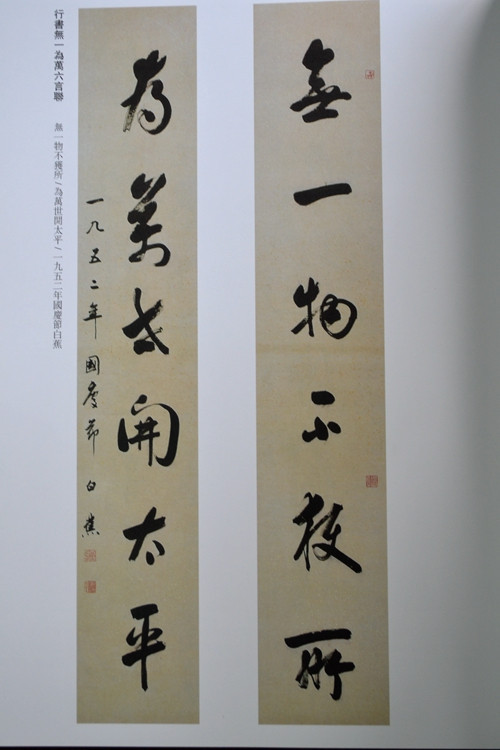 行書無一為萬六言聯
無一物不獲所/為萬世開太平/一九五二年國慶節白蕉
無一物不獲所
為萬世開太平
一九五二年國慶節 白蕉